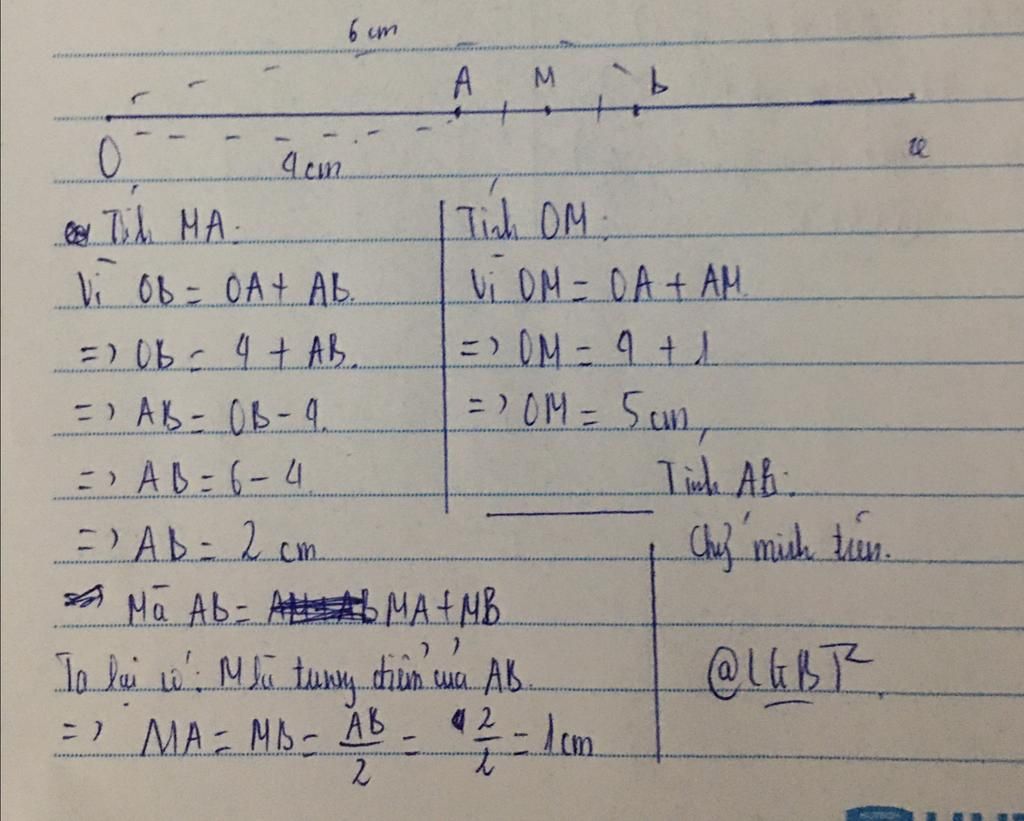 6 cm
A M b
O 4cm x
Tính MA:
Vì OB = OA + AB.
=> OB = 4 + AB.
=> AB = OB - 4.
=> AB = 6 - 4.
=> AB = 2 cm
Mà AB = MA + MB
Ta lại có: M là trung điểm của AB.
=> MA = MB = AB/2 = 2/2 = 1cm
Tính OM:
Vì OM = OA + AM
=> OM = 4 + 1
=> OM = 5 cm
Tính AB:
Chứ minh trên.
@LGBT